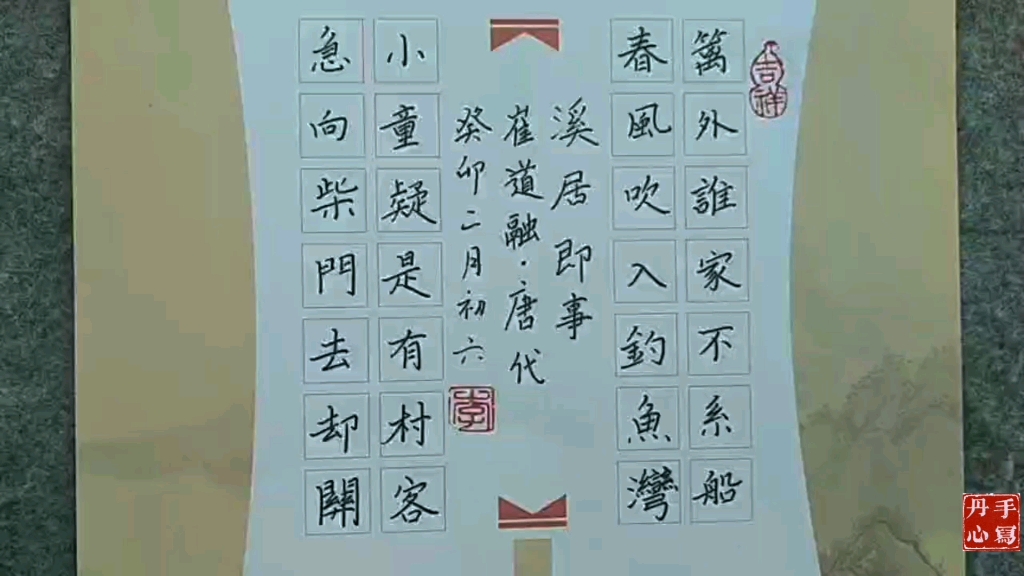 吉祥
篱外誰家不系船
春風吹入釣魚灣
溪居即事
崔道融·唐代
癸卯二月初六
李
小童疑是有村客
急向柴門去却関
手寫丹心